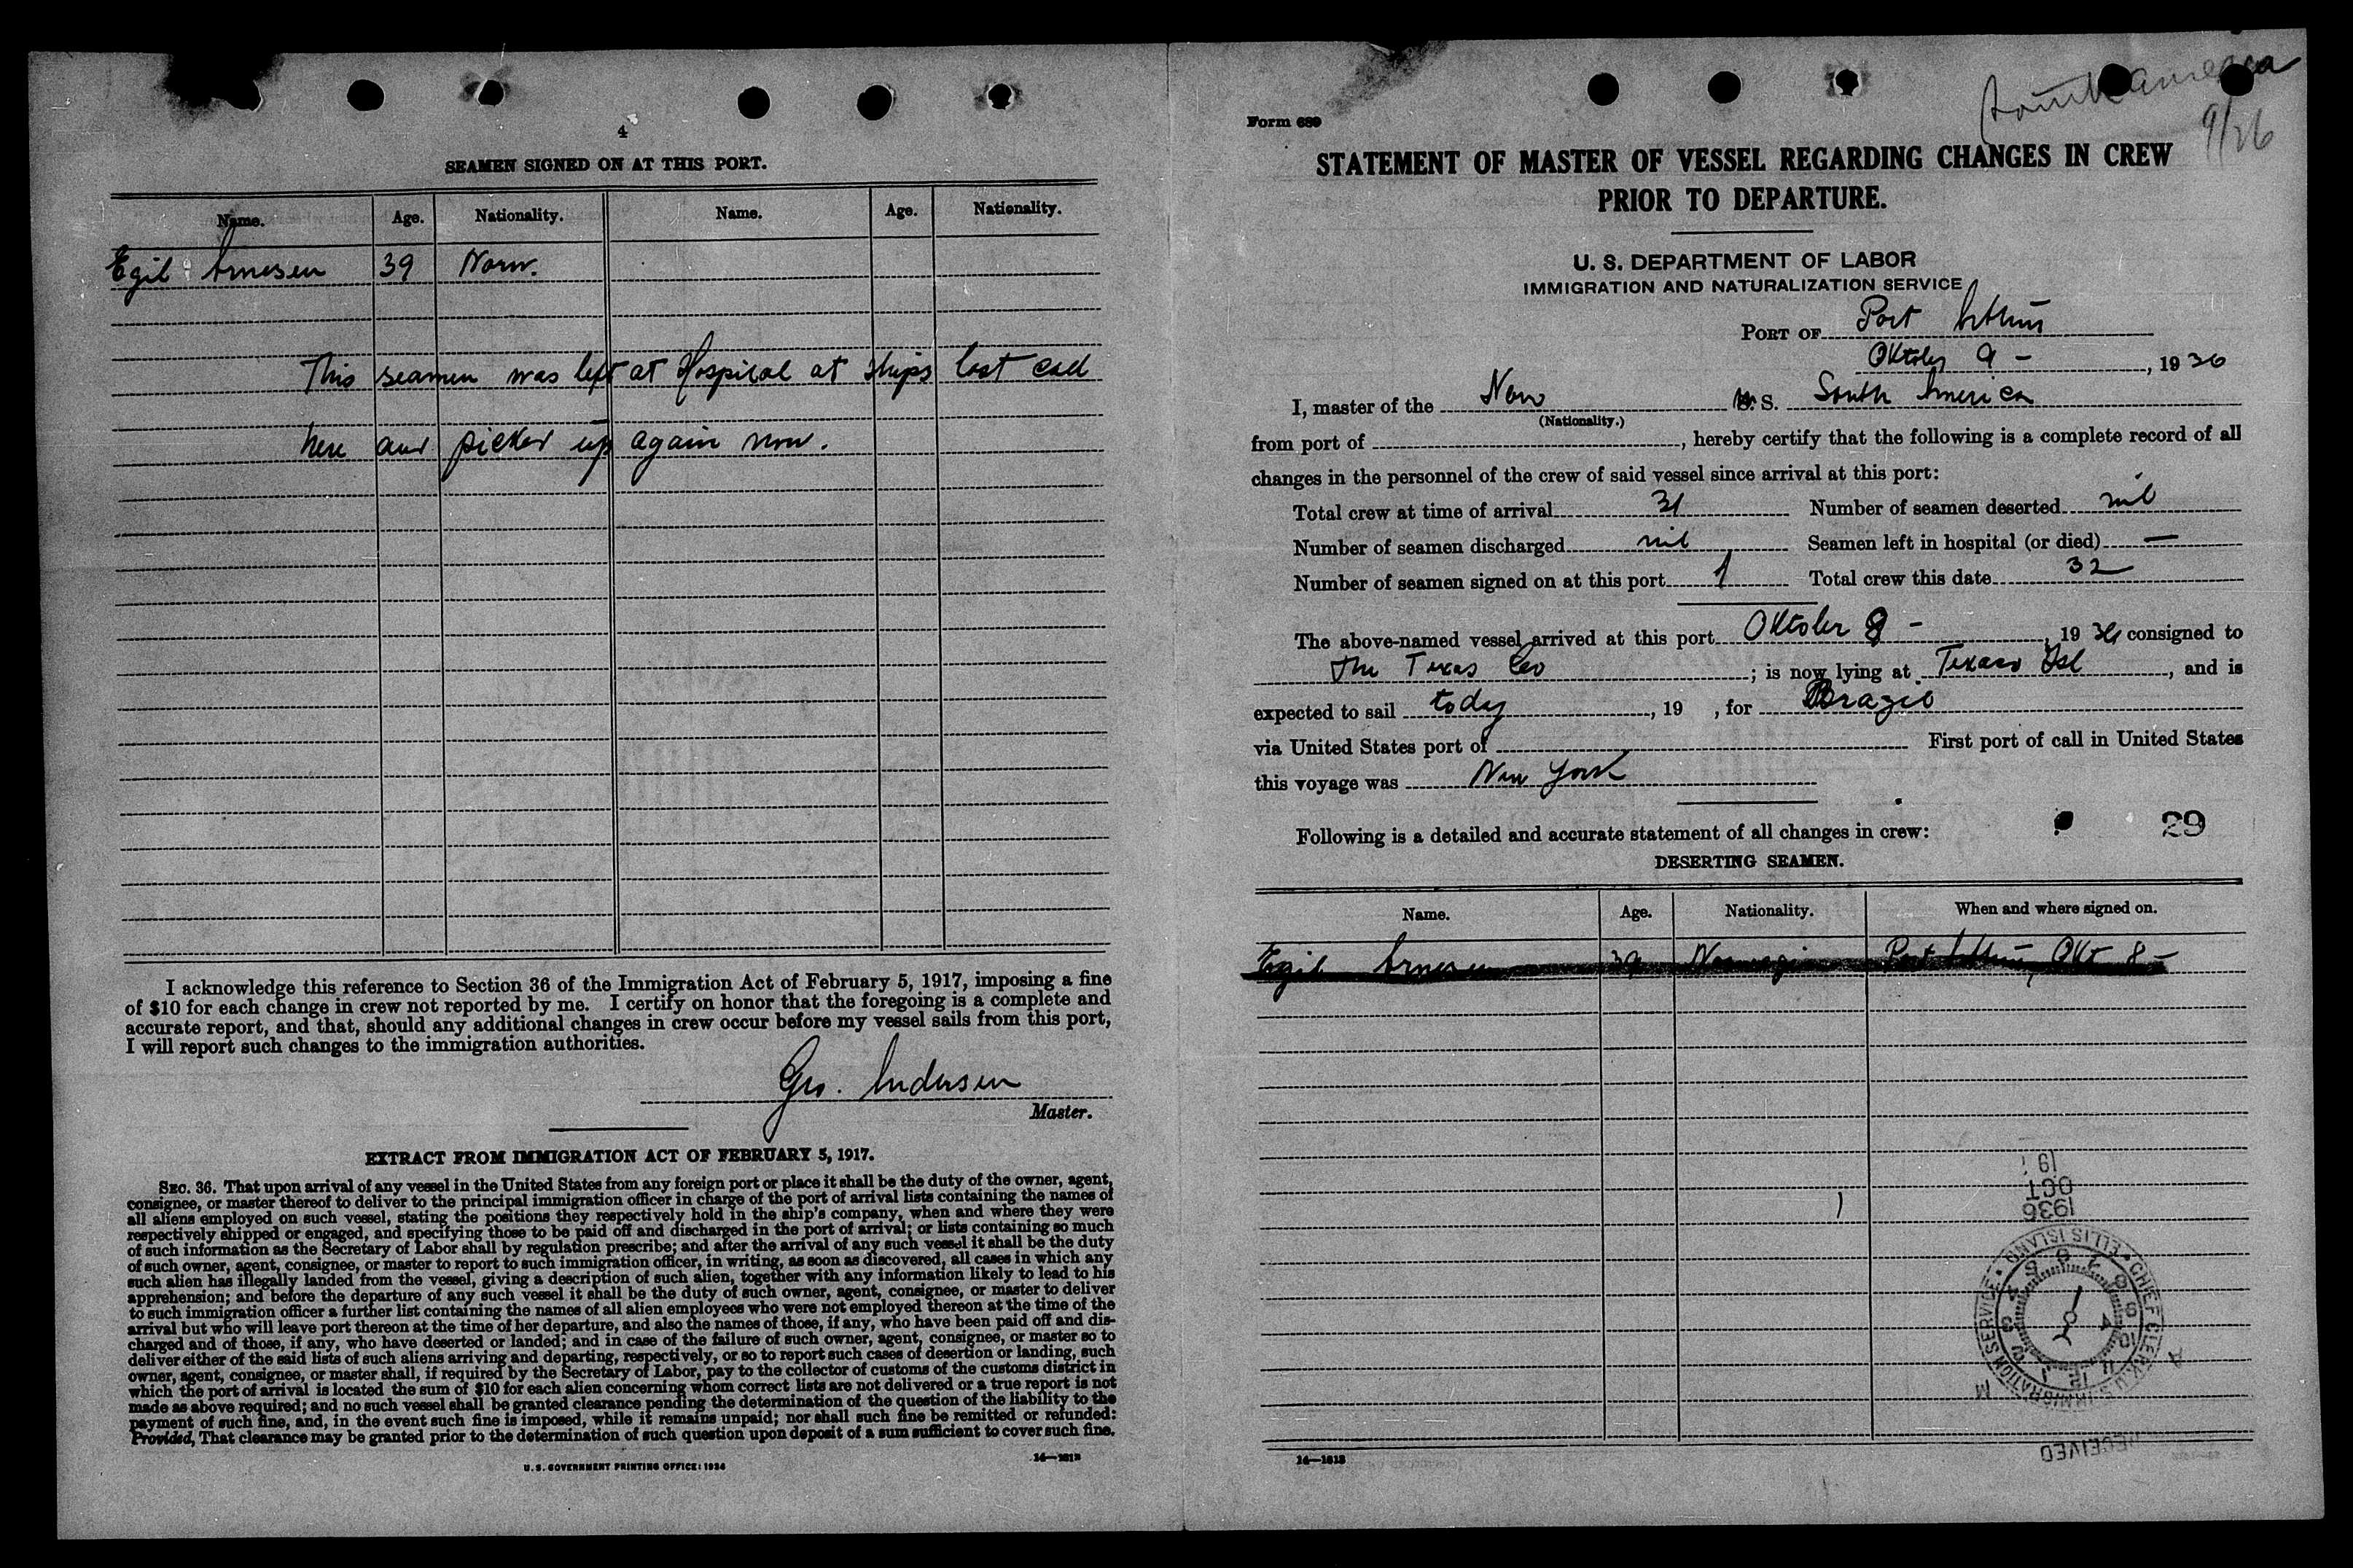 4
SEAMEN SIGNED ON AT THIS PORT.
Name. Age. Nationality. Name. Age. Nationality.
Egil Arnesen 39 Norw.
This seamen was left at Hospital at ships last call
here and picked up again now.
I acknowledge this reference to Section 36 of the Immigration Act of February 5, 1917, imposing a fine
of $10 for each change in crew not reported by me. I certify on honor that the foregoing is a complete and
accurate report, and that, should any additional changes in crew occur before my vessel sails from this port,
I will report such changes to the immigration authorities.
Geo. Andersen
Master.
EXTRACT FROM IMMIGRATION ACT OF FEBRUARY 5, 1917.
SEC. 36. That upon arrival of any vessel in the United States from any foreign port or place it shall be the duty of the owner, agent,
consignee, or master thereof to deliver to the principal immigration officer in charge of the port of arrival lists containing the names of
all aliens employed on such vessel, stating the positions they respectively hold in the ship's company, when and where they were
respectively shipped or engaged, and specifying those to be paid off and discharged in the port of arrival; or lists containing so much
of such information as the Secretary of Labor shall by regulation prescribe; and after the arrival of any such vessel it shall be the duty
of such owner, agent, consignee, or master to report to such immigration officer, in writing, as soon as discovered, all cases in which any
such alien has illegally landed from the vessel, giving a description of such alien, together with any information likely to lead to his
apprehension; and before the departure of any such vessel it shall be the duty of such owner, agent, consignee, or master to deliver
to such immigration officer a further list containing the names of all alien employees who were not employed thereon at the time of the
arrival but who will leave port thereon at the time of her departure, and also the names of those, if any, who have been paid off and dis-
charged and of those, if any, who have deserted or landed; and in case of the failure of such owner, agent, consignee, or master so to
deliver either of the said lists of such aliens arriving and departing, respectively, or so to report such cases of desertion or landing, such
owner, agent, consignee, or master shall, if required by the Secretary of Labor, pay to the collector of customs of the customs district in
which the port of arrival is located the sum of $10 for each alien concerning whom correct lists are not delivered or a true report is not
made as above required; and no such vessel shall be granted clearance pending the determination of the question of the liability to the
payment of such fine, and, in the event such fine is imposed, while it remains unpaid; nor shall such fine be remitted or refunded:
Provided, That clearance may be granted prior to the determination of such question upon deposit of a sum sufficient to cover such fine.
14—1813
U. S. GOVERNMENT PRINTING OFFICE: 1934
South America
9/26
Form 689
STATEMENT OF MASTER OF VESSEL REGARDING CHANGES IN CREW
PRIOR TO DEPARTURE.
U. S. DEPARTMENT OF LABOR
IMMIGRATION AND NATURALIZATION SERVICE
PORT OF Port Arthur
Oktober 9 - , 1936
I, master of the Norw S. S. South America
(Nationality.)
from port of , hereby certify that the following is a complete record of all
changes in the personnel of the crew of said vessel since arrival at this port:
Total crew at time of arrival 31 Number of seamen deserted nil
Number of seamen discharged nil Seamen left in hospital (or died) —
Number of seamen signed on at this port 1 Total crew this date 32
The above-named vessel arrived at this port Oktober 8 - , 1936 consigned to
The Texas Co ; is now lying at Texaco Isl , and is
expected to sail today , 19 , for Brazil
via United States port of First port of call in United States
this voyage was New York
Following is a detailed and accurate statement of all changes in crew: 29
DESERTING SEAMEN.
Name. Age. Nationality. When and where signed on.
Egil Arnesen 39 Norwegian Port Arthur, Okt 8 -
1936
OCT
19
CHIEF CLERK U.S. IMMIGRATION SERVICE • ELLIS ISLAND
A M
RECEIVED
14—1813